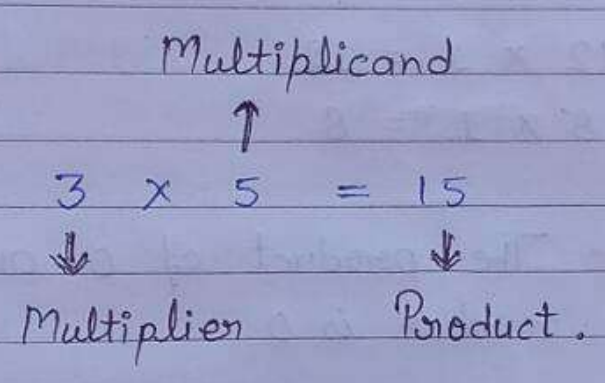 Multiplicand
↑
3 × 5 = 15
↓ ↓
Multiplier Product.